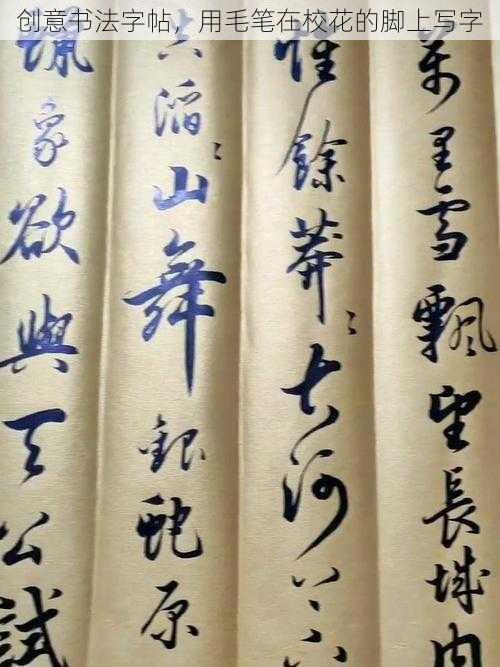 创意书法字帖，用毛笔在校花的脚上写字
萬里雪飄望長城内
惟餘莽〻大河上下
失滔〻山舞銀蛇原
蠟象欲與天公試